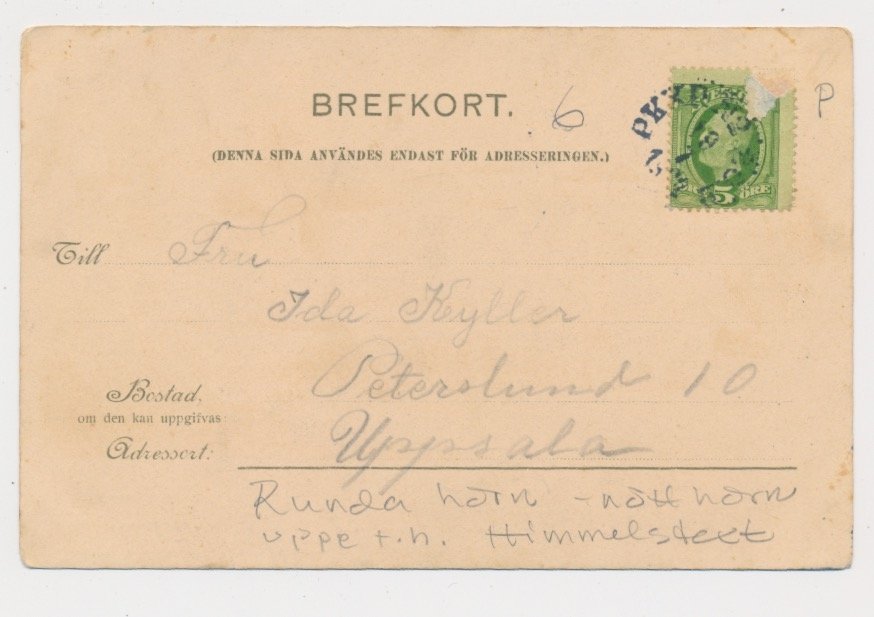 BREFKORT.
6
P
(DENNA SIDA ANVÄNDES ENDAST FÖR ADRESSERINGEN.)
PKXP
5 ÖRE
Till Fru
Ida Kyller
Peterslund 10
Bostad,
om den kan uppgifvas:
Adressort: Uppsala
Runda hörn - nött hörn
uppe t.h. Himmelstext